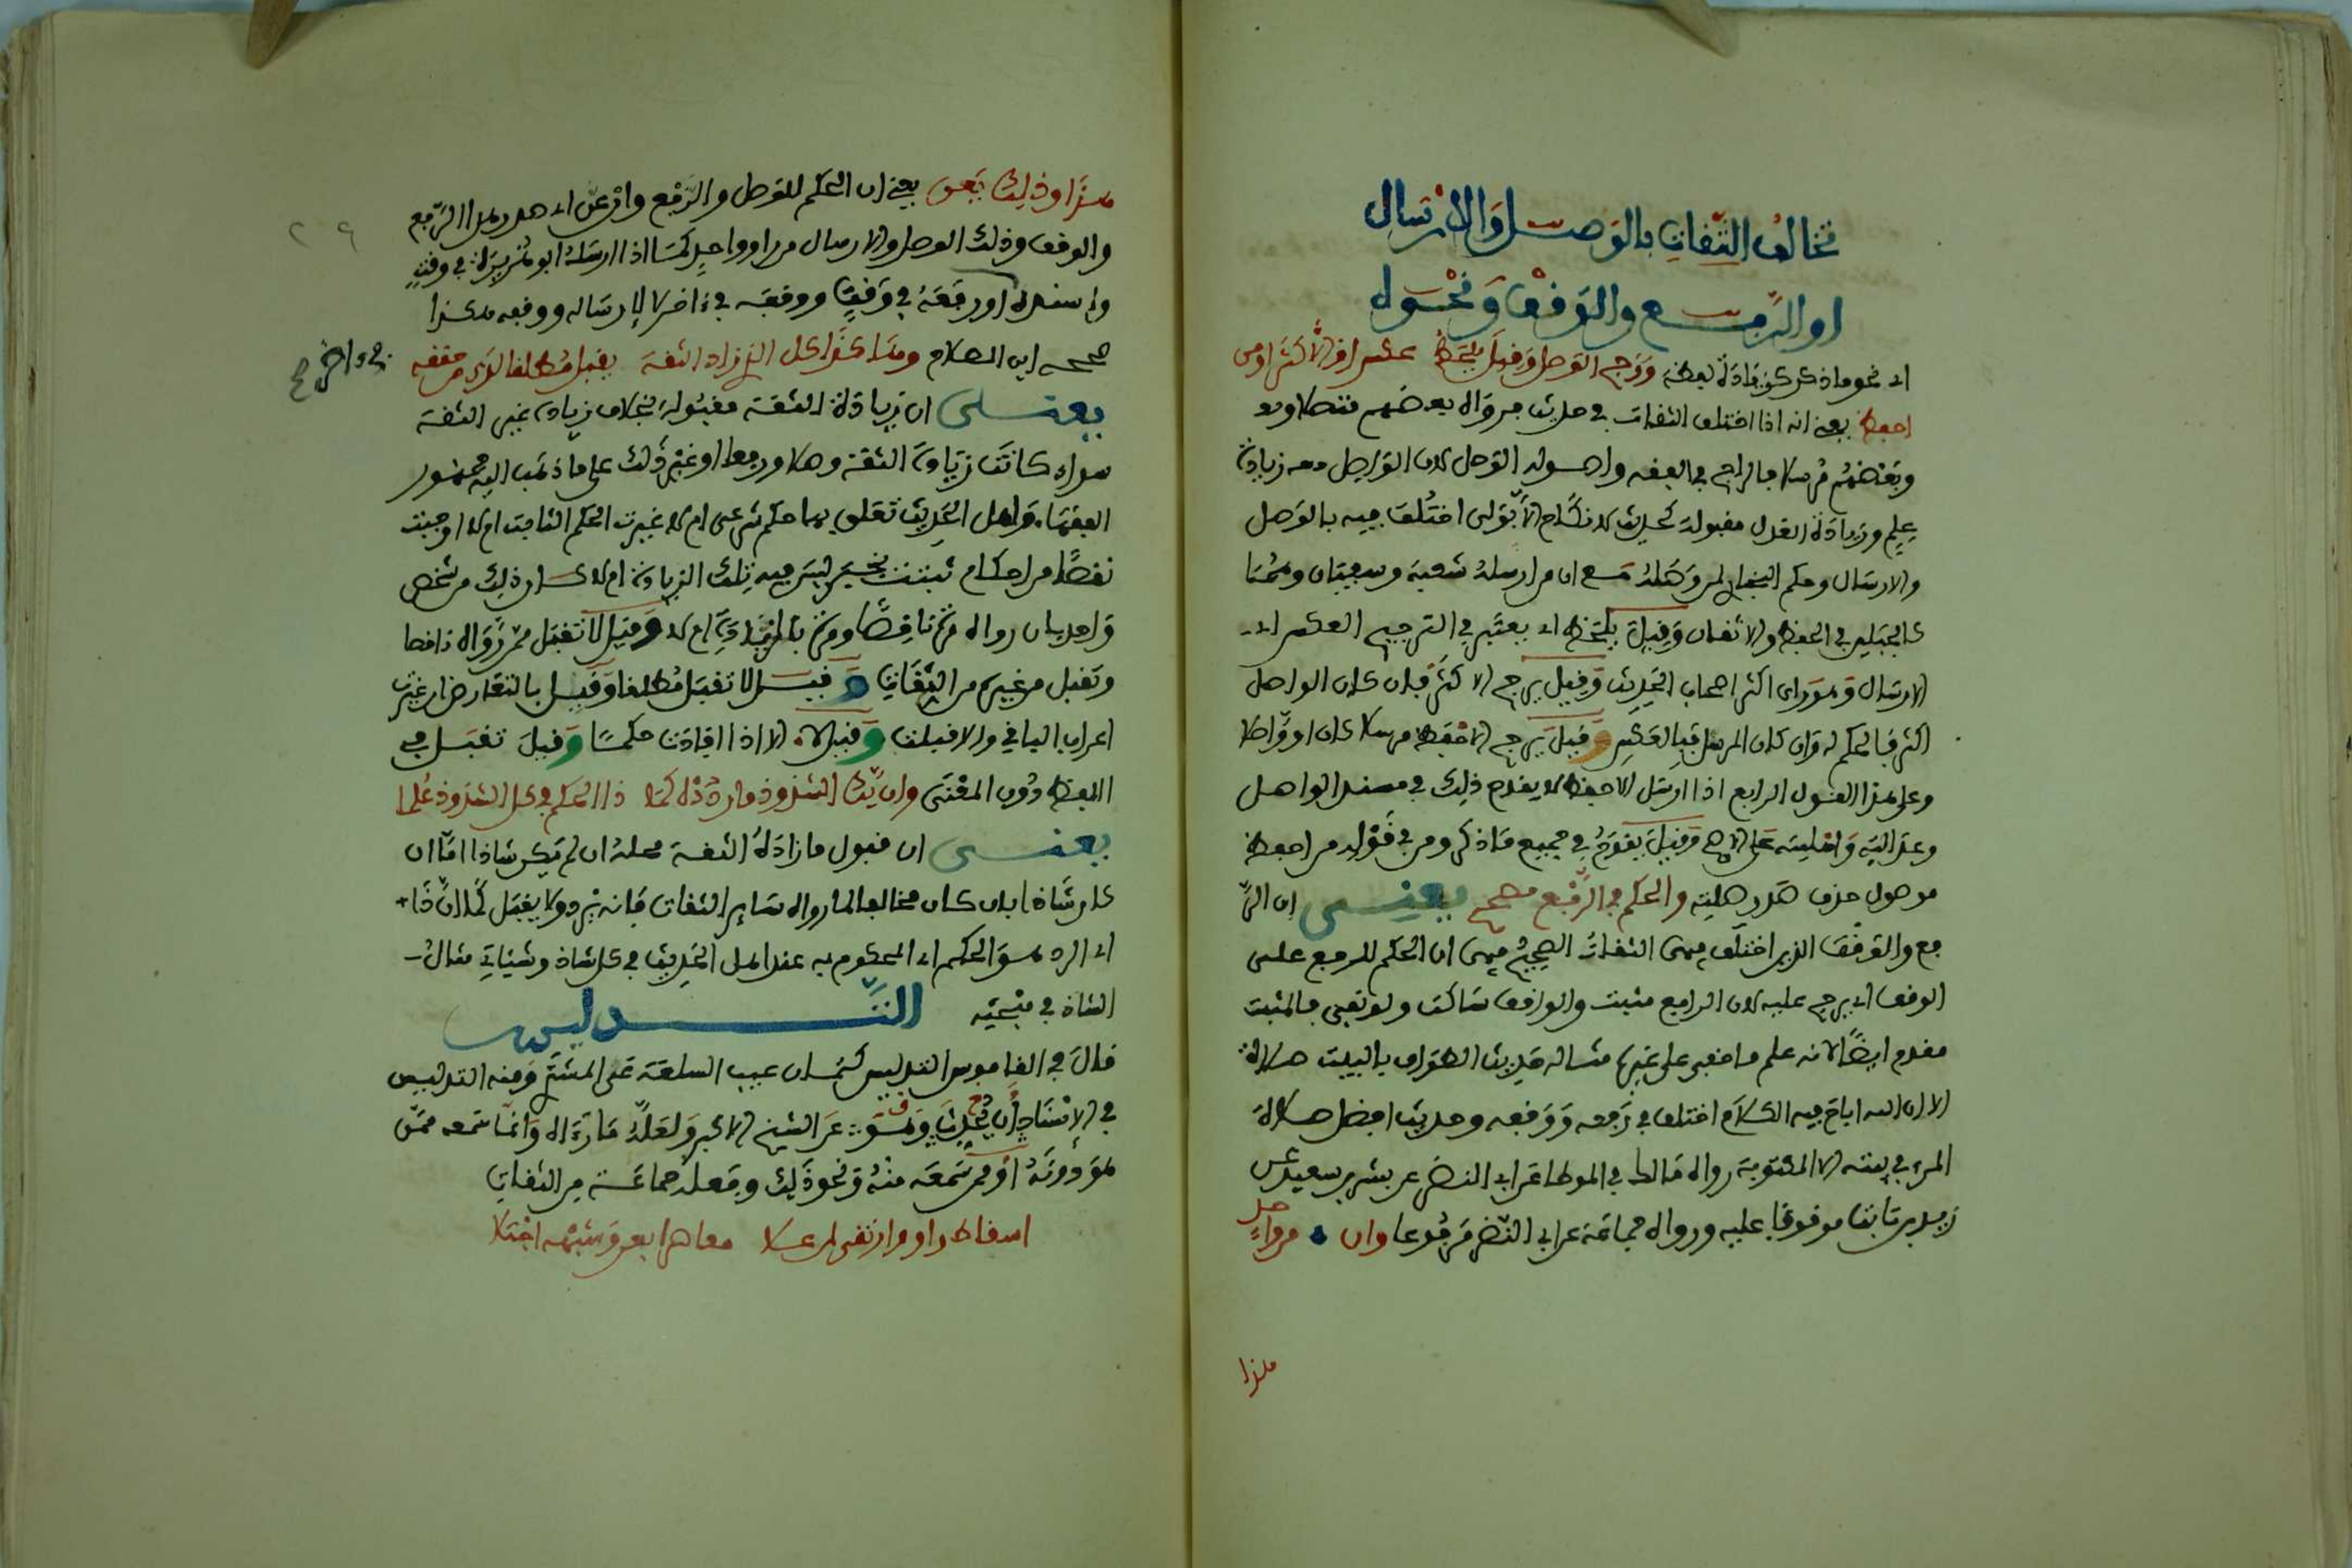 تخالف الثقات بالوصل والارسال
او الرفع والوقف ونحوه
اى نحو ما ذكر كزيادة لفظة ورجح الوصل وقيل بلحظ عكس او الاكثر او من
احفظ يعنى انه اذا اختلف الثقات فى حديث فرواه بعضهم متصلا و
وبعضهم مرسلا فالراجح فى الفقه واصوله الوصل لان الواصل معه زيادة
علم وزيادة العدل مقبولة كحديث لا نكاح الا بولى اختلف فيه بالوصل
والارسال وحكم البخارى لمن وصله مع ان من ارسله شعبة وسفيان وهما
كالجبلين فى الحفظ والاتقان وقيل بلحظ اى يعتبر فى الترجيح العكس اى
الارسال وهو راى اكثر اصحاب الحديث وقيل يرجح الاكثر فان كان الواصل
اكثر فالحكم له وان كان المرسل فبالعكس وقيل يرجح الاحفظ مرسلا كان او واصلا
وعلى هذا القول الرابع اذا ارسل الاحفظ لا يقدح ذلك فى مسند الواصل
وعدالته واهليته على الاصح وقيل يقدح فى جميع ما ذكر ومن فى قوله من احفظ
موصول حذف صدر صلته والحكم فى الرفع صحح يعنى ان الر
فع والوقف الذى اختلف فيهما الثقات الصحيح فيهما ان الحكم للرفع على
الوقف اى يرجح عليه لان الرافع مثبت والواقف ساكت ولو نفى فالمثبت
مقدم ايضا لانه علم ما خفى على غيره مثاله حديث الطواف بالبيت صلاة
الا ان الله اباح فيه الكلام اختلف فى رفعه ووقفه وحديث افضل صلاة
المرء فى بيته الا المكتوبة رواه مالك فى الموطا عن ابى النضر عن بشر بن سعيد عن
زيد بن ثابت موقوفا عليه ورواه جماعة عن ابى النضر مرفوعا وان من واحد
هذا
هذا وذلك يعن يعنى ان الحكم للوصل والرفع وان عن اى صدر هذا الرفع
والوقف وذلك الوصل والارسال من راو واحد كما اذا ارسله ابو بريرة فى وقت
واسنده او رفعه فى وقت ووقفه فى ءاخر لا لارساله ووقفه هكذا
صححه ابن الصلاح وهكذا كل الذ زاد الثقة يقبل مطلقا لدى من حققه
يعنى ان زيادة الثقة مقبولة بخلاف زيادة غير الثقة
سواء كانت زيادة الثقة وصلا ورفعا او غير ذلك على ما ذهب اليه جمهور
الفقهاء واهل الحديث تعلق بها حكم شرعى ام لا غيرت الحكم الثابت ام لا اوجبت
نقصا من احكام ثبتت بخبر ليس فيه تلك الزيادة ام لا كان ذلك من شخص
واحد بان رواه مرة ناقصا ومرة بالزيادة ام لا وقيل لا تقبل ممن رواه ناقصا
وتقبل من غيره من الثقات وقيل لا تقبل مطلقا وقيل بالتعارض ان غيرت
اعراب الباقى والا قبلت وقيل لا الا اذا افادت حكما وقيل تقبل فى
اللفظ دون المعنى وان يك الشذوذ فاردده كما ذا الحكم فى كل الشذوذ علما
يعنى ان قبول ما زاده الثقة محله ان لم يكن شاذا اما ان
كان شاذا بان كان مخالفا لما رواه سائر الثقات فانه يرد ولا يقبل كما ان ذا
اى الرد هو الحكم اى المحكوم به عند اهل الحديث فى كل شاذ وسياتى مثال
الشاذ فى مبحثه التدليس
قال فى القاموس التدليس كتمان عيب السلعة عن المشترى ومنه التدليس
فى الاسناد وهو ان يحدث عن الشيخ الاكبر ولعله ما رءاه وانما سمعه ممن
هو دونه او ممن سمعه منه ونحو ذلك وفعله جماعة من الثقات
اسقاط راو وارتقى لمن علا معاصرا بعن وشبهه اجتلا